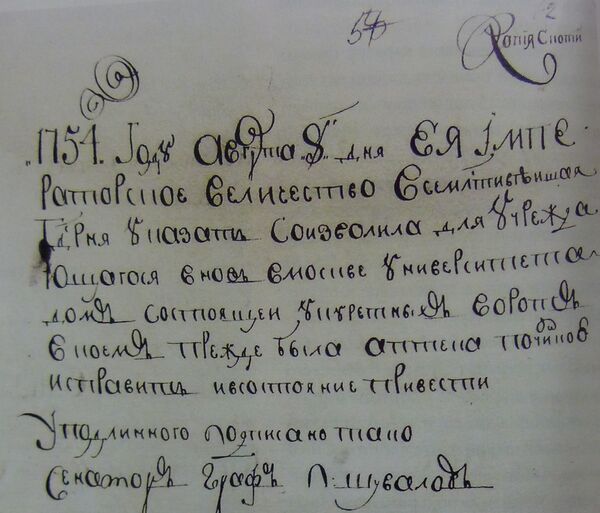 54
2
Копія с копіи
"1754. Году августа "8" дня ЕЯ ІМПЕ
раторское величество всемлтивѣишая
Гдрня указатъ соизволила для учрежда
ющагося вновъ вмоскве университета
домъ состоящеи укуретныхъ воротъ
вкоемъ прежде была аптека починкою
исправитъ ивсостояние привести
Уподлинного подписано тако
Сенаторъ Графъ П: Шуваловъ